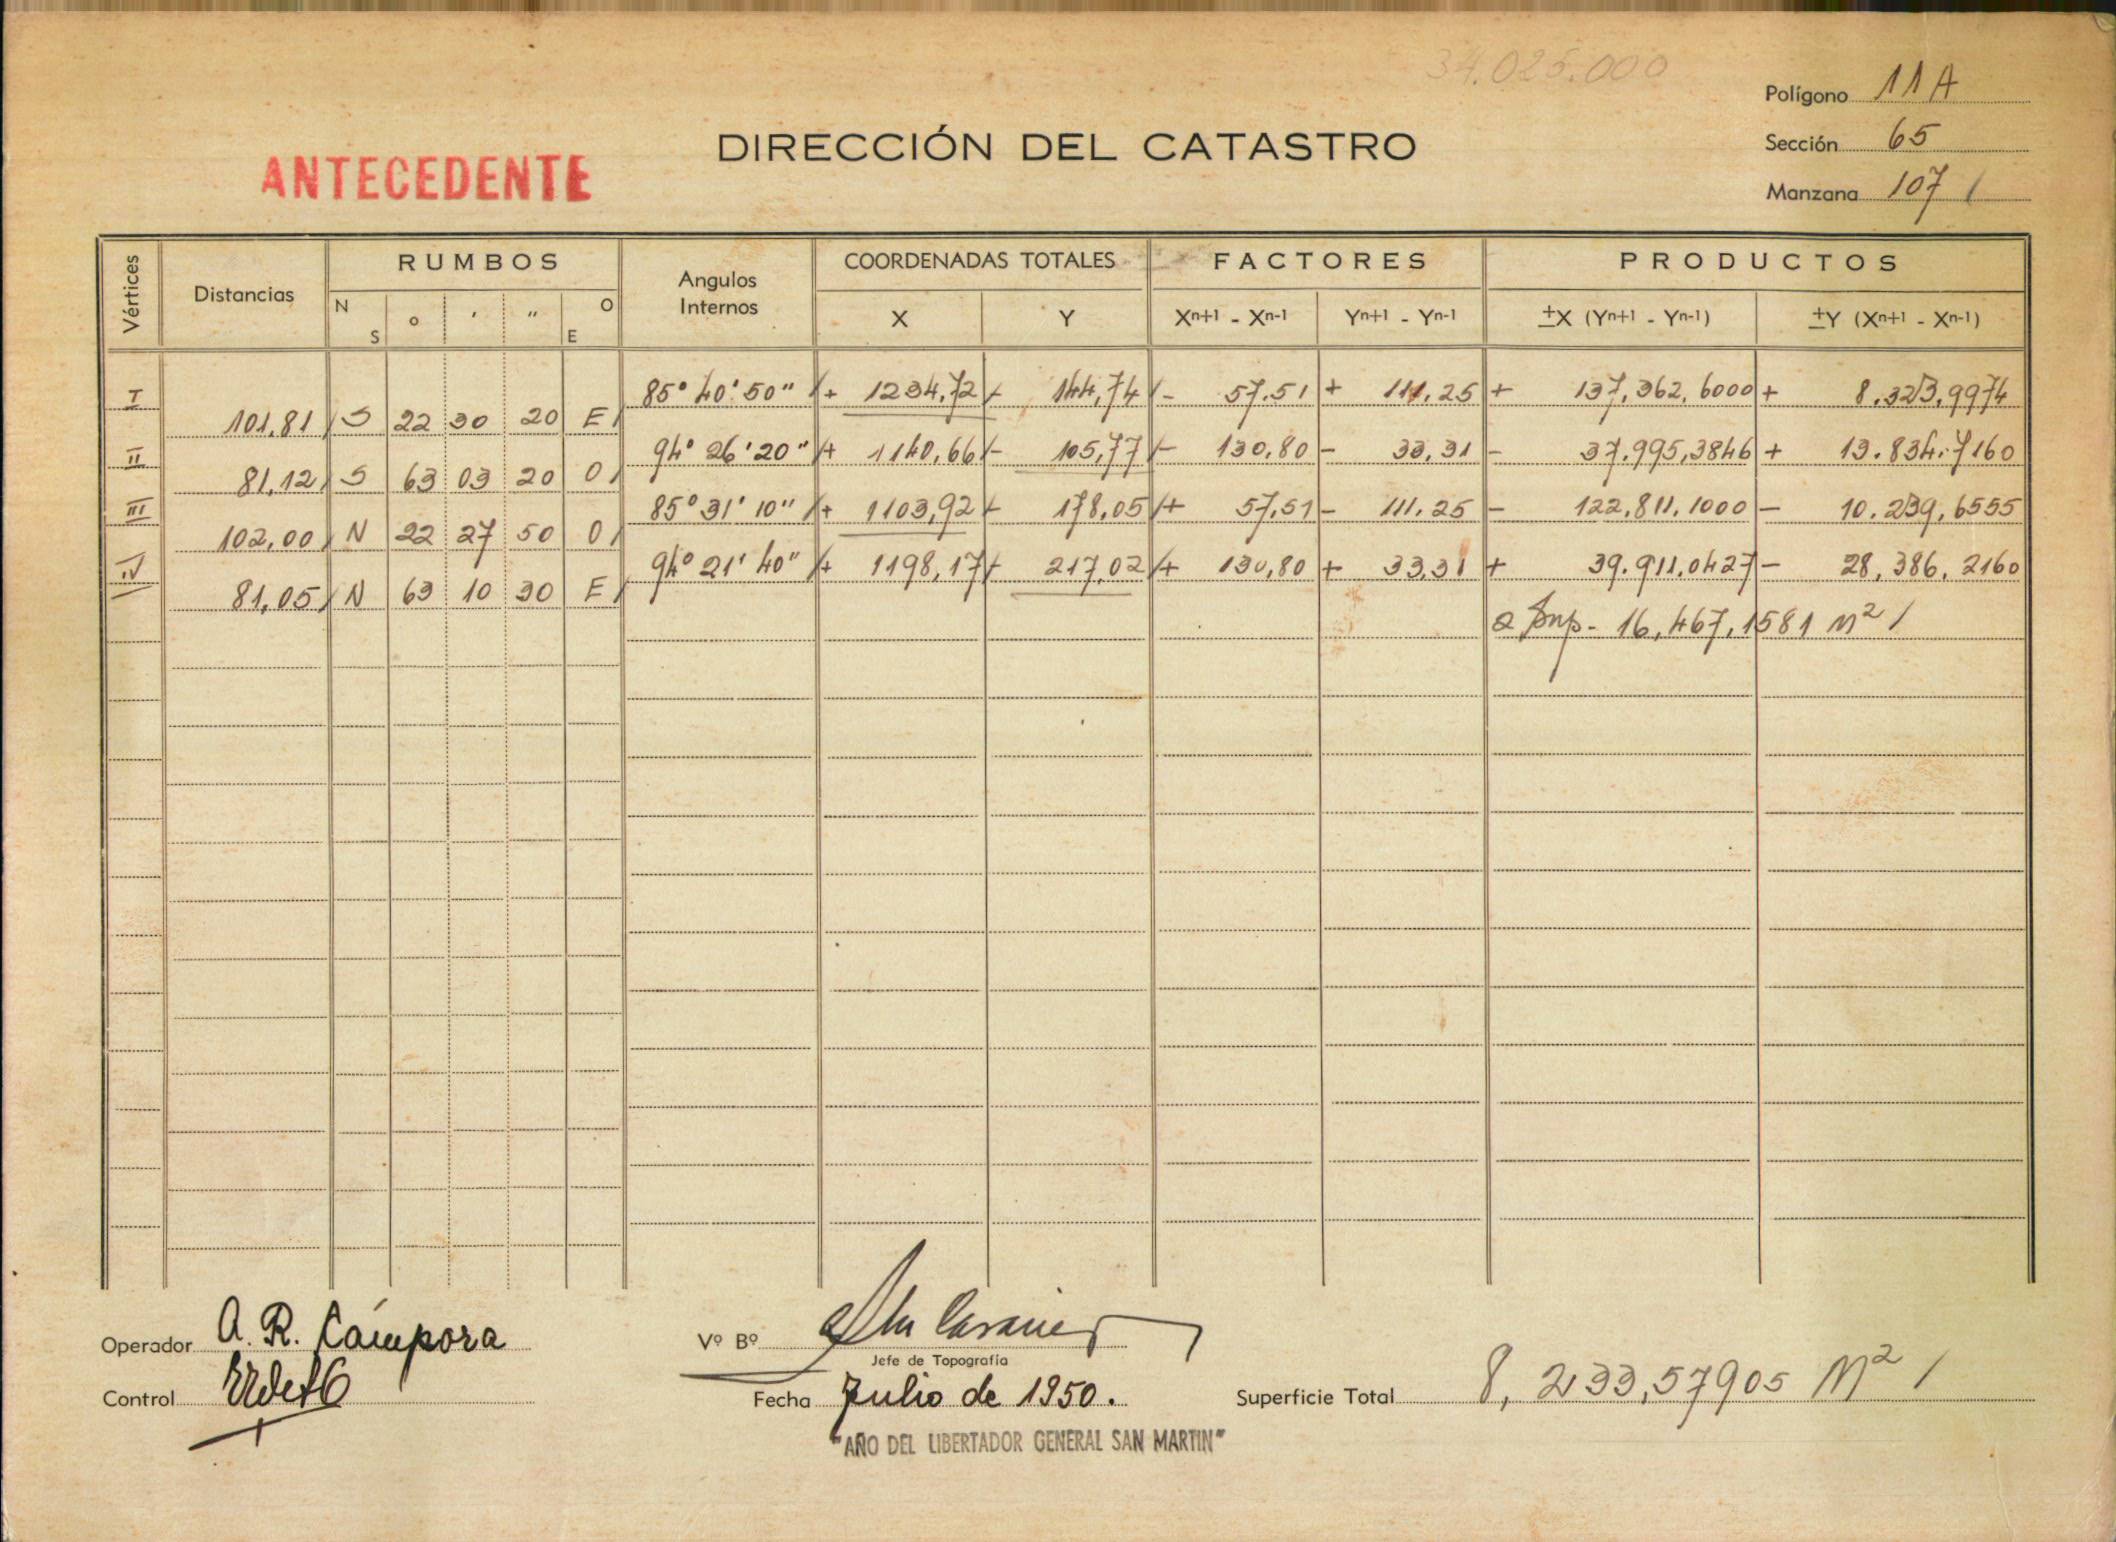 34.025.000
Polígono 11A
DIRECCIÓN DEL CATASTRO
Sección 65
ANTECEDENTE
Manzana 107 /
Vértices Distancias RUMBOS Angulos Internos COORDENADAS TOTALES FACTORES PRODUCTOS
N S o ' " O E X Y Xn+1 - Xn-1 Yn+1 - Yn-1 ±X (Yn+1 - Yn-1) ±Y (Xn+1 - Xn-1)
I 85° 40' 50" /+ 1234,72 /- 144,74 /- 57.51 + 111,25 + 137,362,6000 + 8.323,9974
101,81 / S 22 30 20 E /
II 94° 26' 20" /+ 1140,66 /- 105,77 /- 130,80 - 33,31 - 37.995,3846 + 13.834.7160
81,12 / S 63 03 20 O /
III 85° 31' 10" /+ 1103,92 /- 178,05 /+ 57,51 - 111.25 - 122,811,1000 - 10.239,6555
102,00 / N 22 27 50 O /
IV 94° 21' 40" /+ 1198,17 /- 217,02 /+ 130,80 + 33,31 + 39.911,0427 - 28,386,2160
81,05 / N 63 10 30 E /
2 Sup- 16,467,1581 m2 /
Operador A. R. Cámpora
Vº Bº
Jefe de Topografía
Control
Fecha Julio de 1950.
Superficie Total 8,233,57905 m2 /
"AÑO DEL LIBERTADOR GENERAL SAN MARTIN"